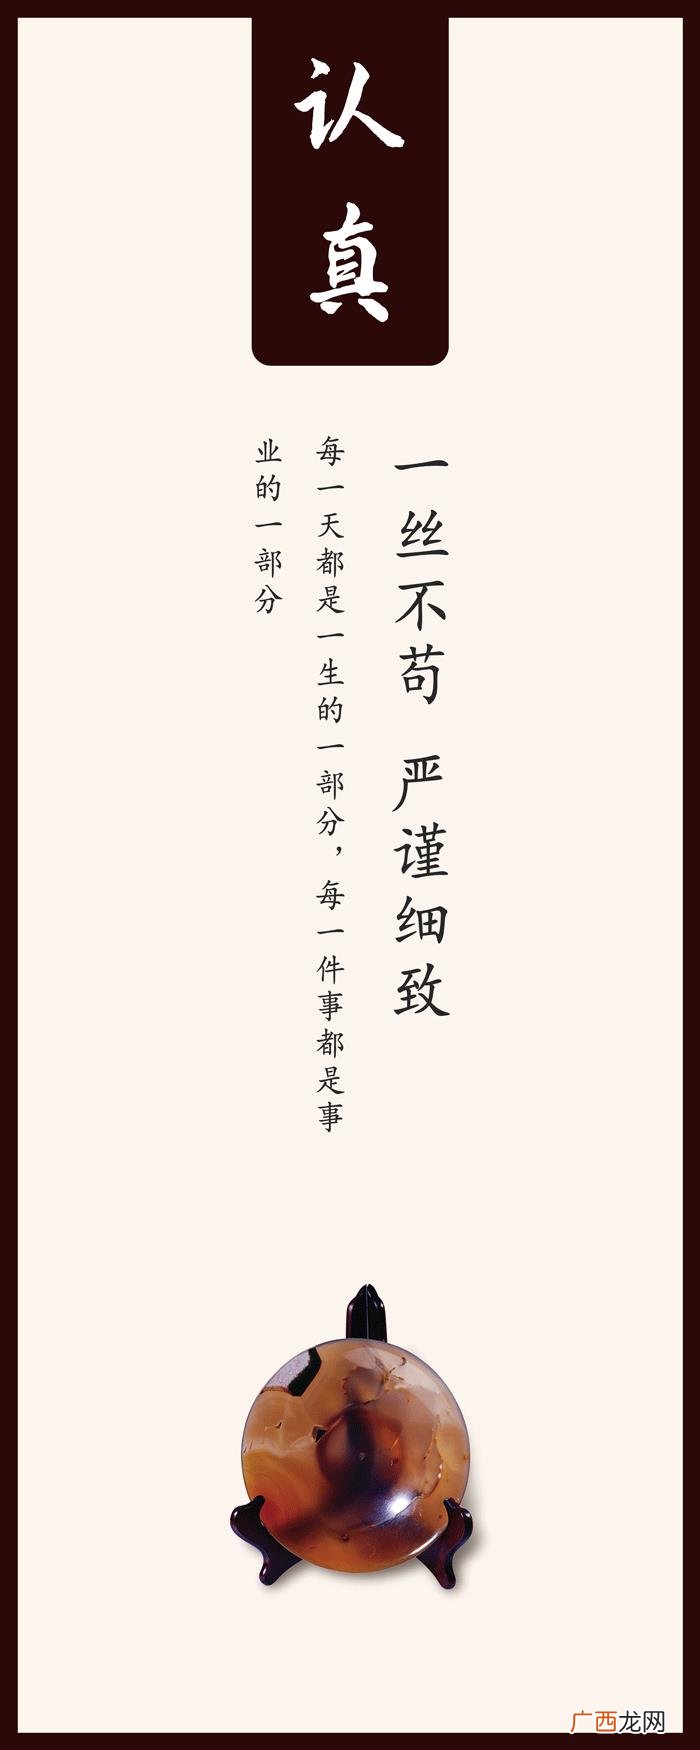 认真
一丝不苟 严谨细致
每一天都是一生的一部分，每一件事都是事
业的一部分
广西龙网